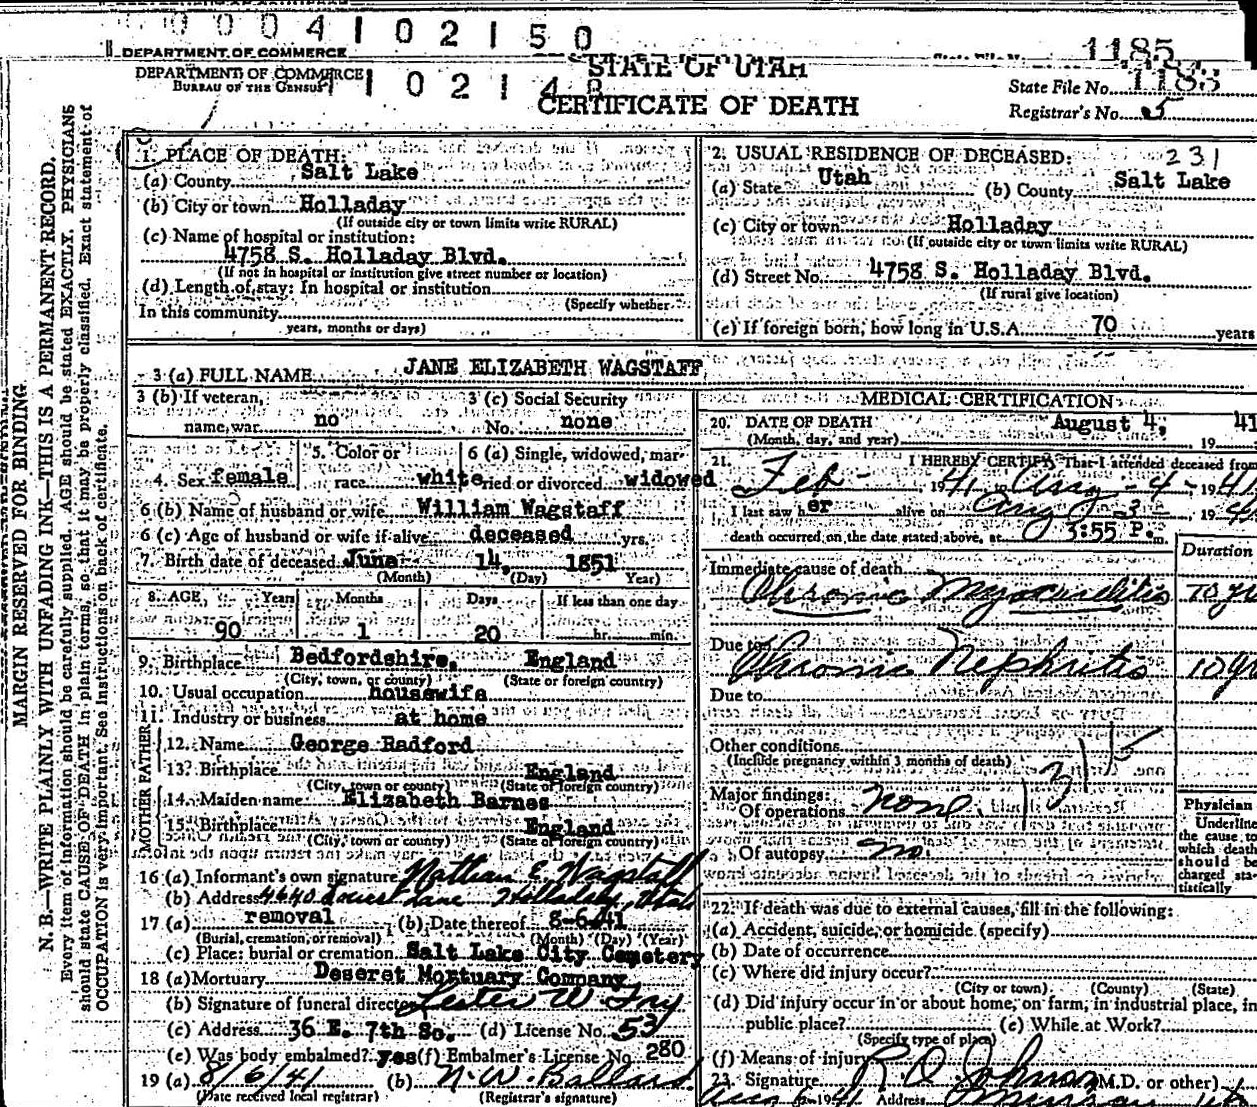 0004102150
DEPARTMENT OF COMMERCE
1185
DEPARTMENT OF COMMERCE
BUREAU OF THE CENSUS
STATE OF UTAH
CERTIFICATE OF DEATH
State File No. 1183
Registrar's No. 5
MARGIN RESERVED FOR BINDING
N. B.—WRITE PLAINLY WITH UNFADING INK—THIS IS A PERMANENT RECORD.
Every item of information should be carefully supplied. AGE should be stated EXACTLY. PHYSICIANS
should state CAUSE OF DEATH in plain terms, so that it may be properly classified. Exact statement of
OCCUPATION is very important. See instructions on back of certificate.
1. PLACE OF DEATH:
(a) County Salt Lake
(b) City or town Holladay
(If outside city or town limits write RURAL)
(c) Name of hospital or institution:
4758 S. Holladay Blvd.
(If not in hospital or institution give street number or location)
(d) Length of stay: In hospital or institution
(Specify whether
In this community
years, months or days)
2. USUAL RESIDENCE OF DECEASED:
231
(a) State Utah (b) County Salt Lake
(c) City or town Holladay
(If outside city or town limits write RURAL)
(d) Street No. 4758 S. Holladay Blvd.
(If rural give location)
(e) If foreign born, how long in U.S.A. 70 years
3 (a) FULL NAME JANE ELIZABETH WAGSTAFF
3 (b) If veteran, name war no
3 (c) Social Security No. none
4. Sex female
5. Color or race white
6 (a) Single, widowed, married or divorced widowed
6 (b) Name of husband or wife William Wagstaff
6 (c) Age of husband or wife if alive deceased yrs.
7. Birth date of deceased June 14, 1851
(Month) (Day) Year)
8. AGE Years Months Days If less than one day
90 1 20 hr. min.
9. Birthplace Bedfordshire, England
(City, town, or county) (State or foreign country)
10. Usual occupation housewife
11. Industry or business at home
FATHER
12. Name George Radford
13. Birthplace England
(City, town or county) (State of foreign country)
MOTHER
14. Maiden name Elizabeth Barnes
15. Birthplace England
(City, town or county) (State of foreign country)
16 (a) Informant's own signature Nathan E. Wagstaff
(b) Address 4640 Lane Holladay, Utah
17 (a) removal (b) Date thereof 8-6-41
(Burial, cremation, or removal) (Month) (Day) (Year)
(c) Place: burial or cremation Salt Lake City Cemetery
18 (a) Mortuary Deseret Mortuary Company
(b) Signature of funeral director Lester W
(c) Address 36 E. 7th So. (d) License No. 53
(e) Was body embalmed? yes (f) Embalmer's License No. 280
19 (a) 8/6/41 (b) N. W. Ballard
(Date received local registrar) (Registrar's signature)
MEDICAL CERTIFICATION
20. DATE OF DEATH August 4, 19 41
(Month, day, and year)
21. I HEREBY CERTIFY That I attended deceased from
Feb - 1941 to Aug - 4 - 1941
I last saw her alive on Aug 3 19 41
death occurred on the date stated above, at 3:55 P. m.
Duration
Immediate cause of death
Chronic Myocarditis 10 yr
Due to Chronic Nephritis 10 yr
Due to
Other conditions
(Include pregnancy within 3 months of death)
Major findings:
Of operations none
Of autopsy no
Physician
Underline
the cause to
which death
should be
charged sta-
tistically
22. If death was due to external causes, fill in the following:
(a) Accident, suicide, or homicide (specify)
(b) Date of occurrence
(c) Where did injury occur?
(City or town) (County) (State)
(d) Did injury occur in or about home, on farm, in industrial place, in
public place? (e) While at Work?
(Specify type of place)
(f) Means of injury
23. Signature R. O. Johnson (M.D. or other)
Aug 6 1941 Address Murray